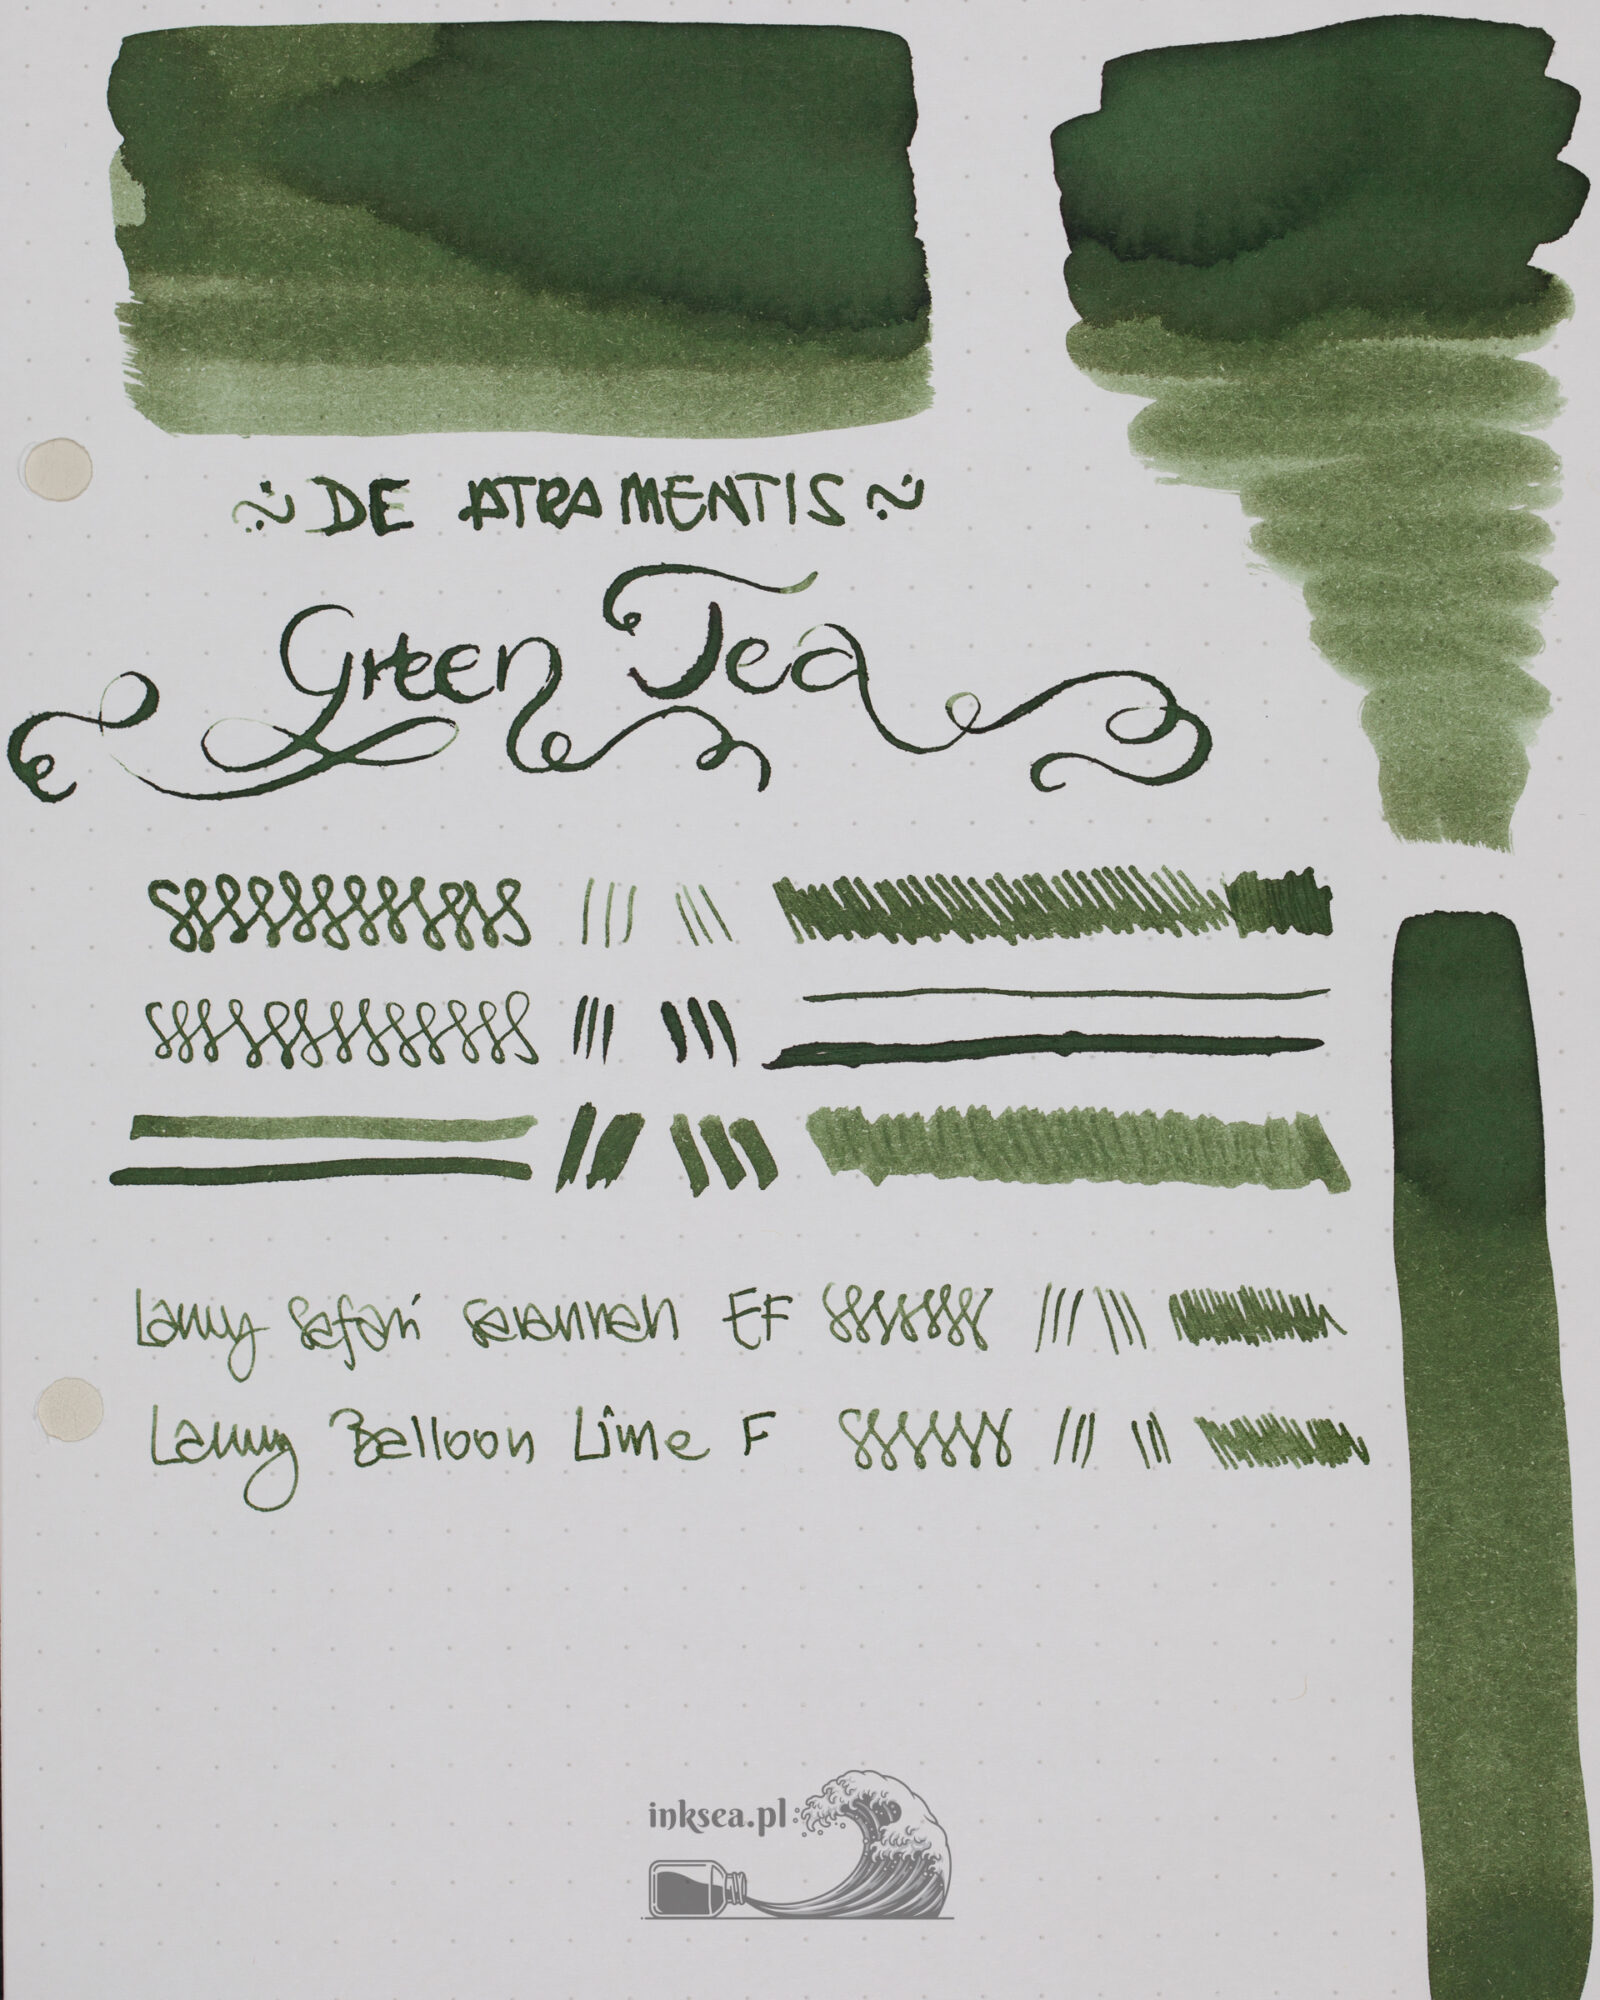 DE ATRAMENTIS
Green Tea
Lamy Safari Savannah EF
Lamy Balloon Lime F
inksea.pl